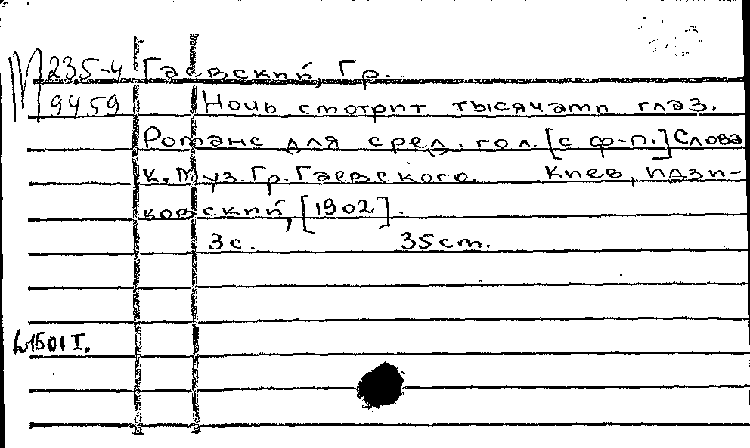 М 235-4 Гаевский, Гр.
9459 Ночь смотрит тысячами глаз.
Романс для сред. гол. [с ф-п.] Слова
и муз. Гр. Гаевского. Киев, Идзи-
ковский, [1902].
3с. 35cm.
L1501 I.